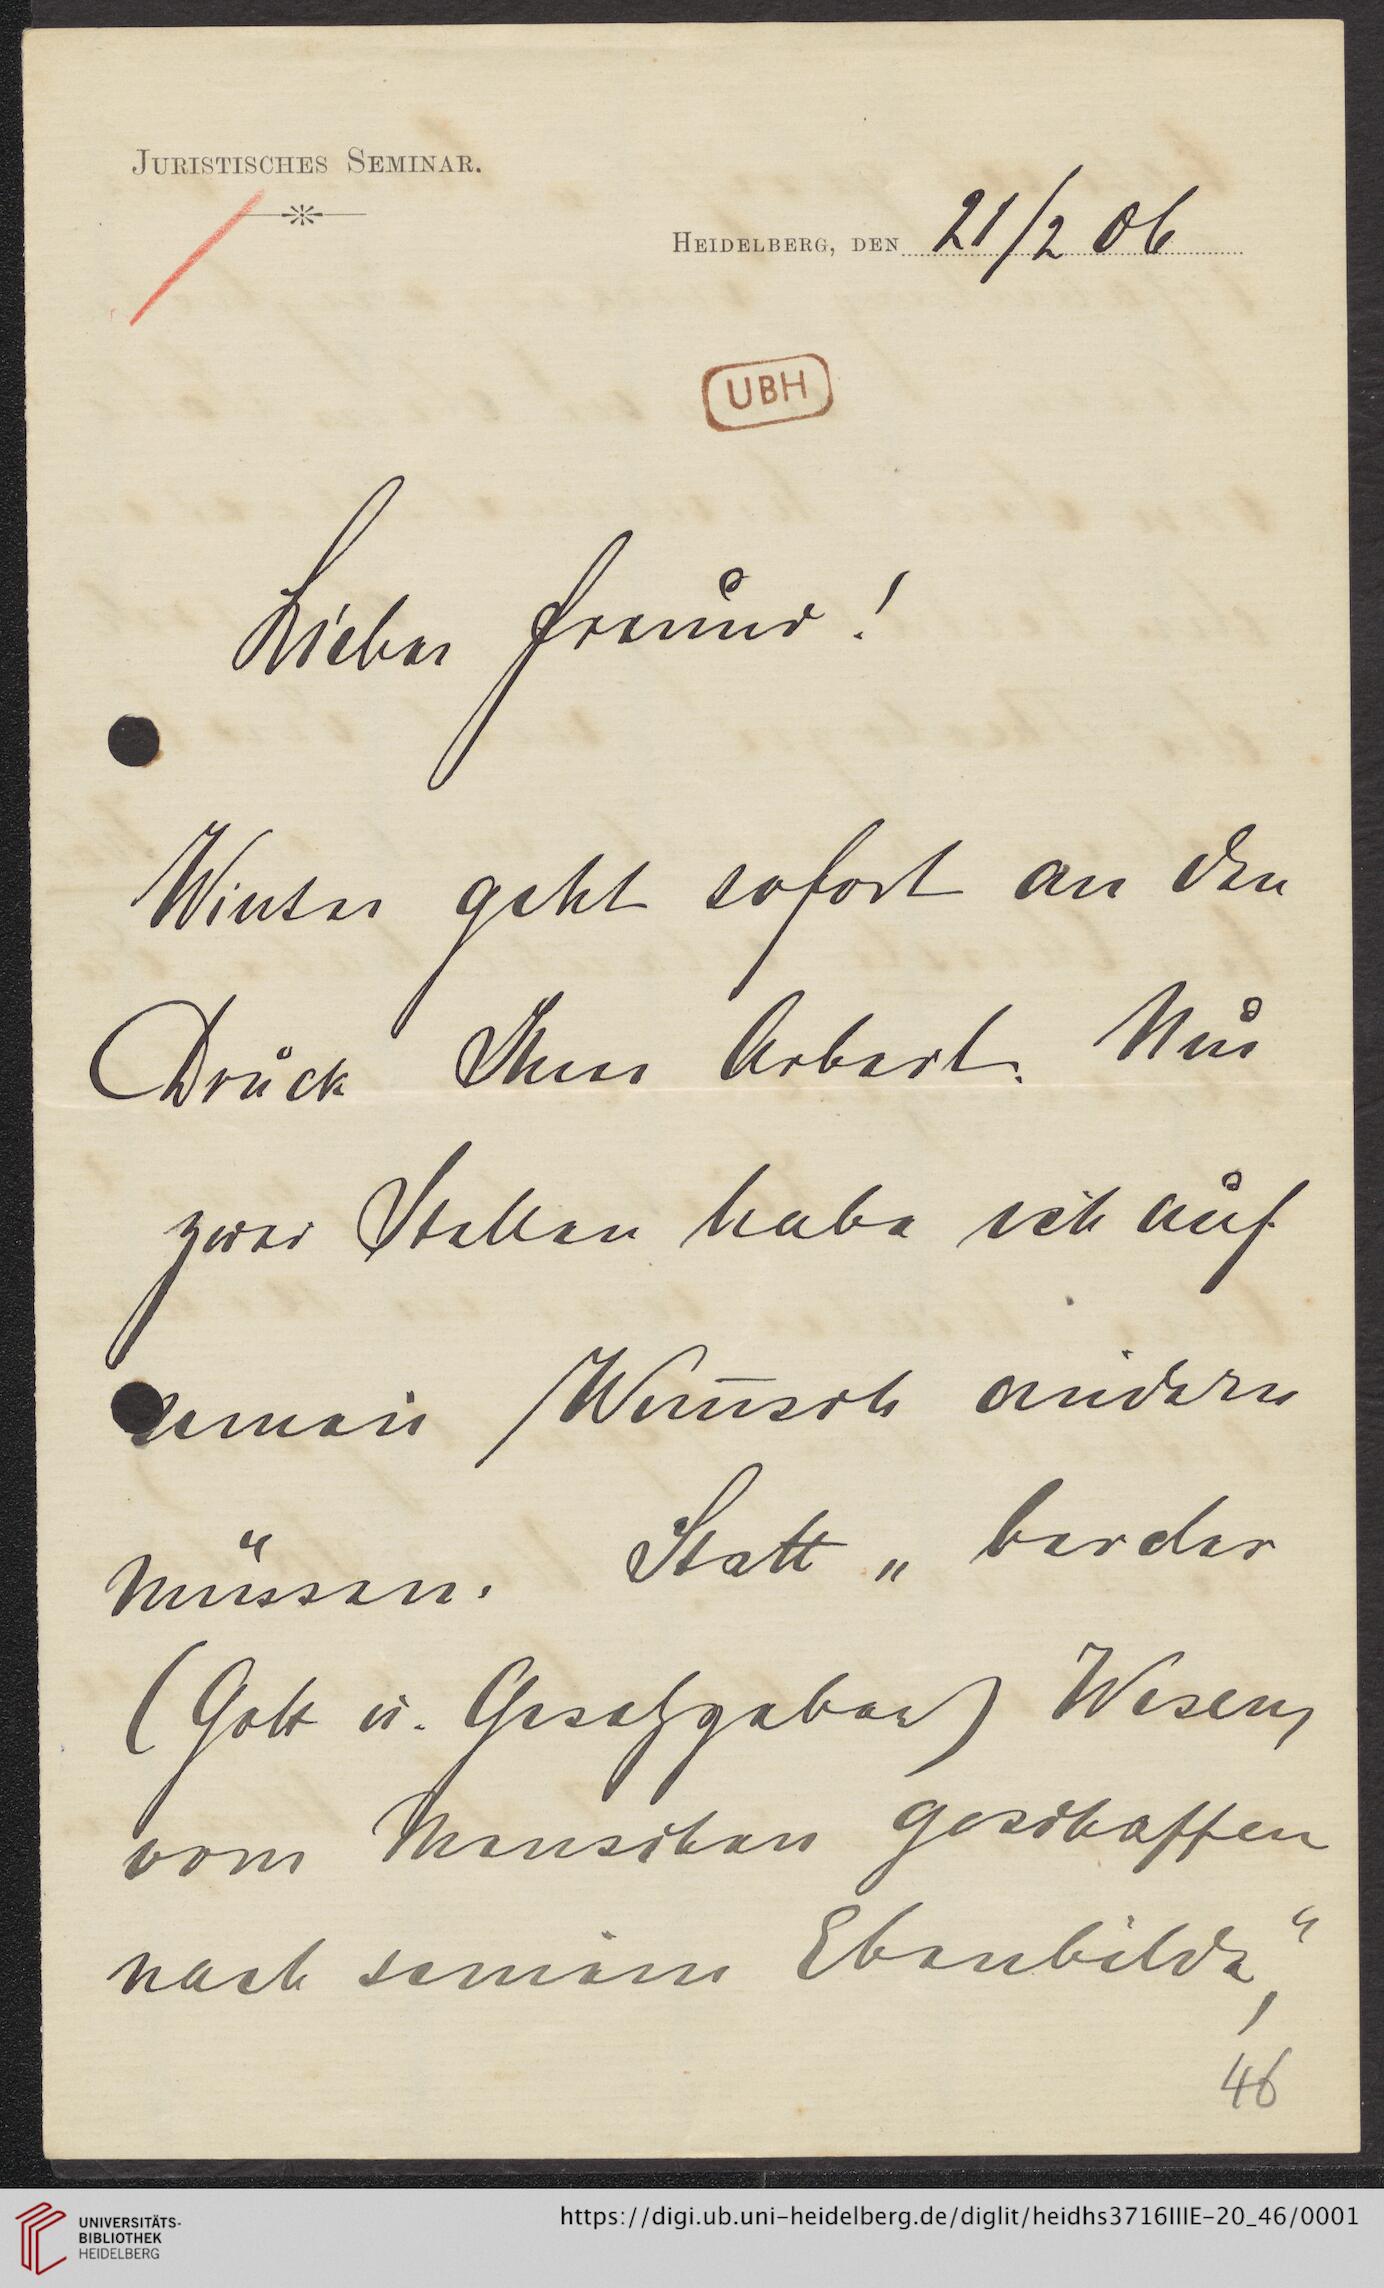 JURISTISCHES SEMINAR.
HEIDELBERG, DEN 21/2 06
UBH
Lieber Freund!
Winter geht sofort an den
Druck Ihrer Arbeit. Nur
zwei Stellen habe ich auf
seinen Wunsch ändern
müssen. Statt „beider
(Gott u. Gesetzgeber) Wesen,
vom Menschen geschaffen
nach seinem Ebenbilde“,
46
UNIVERSITÄTS-
BIBLIOTHEK
HEIDELBERG
https://digi.ub.uni-heidelberg.de/diglit/heidhs3716IIIE-20_46/0001